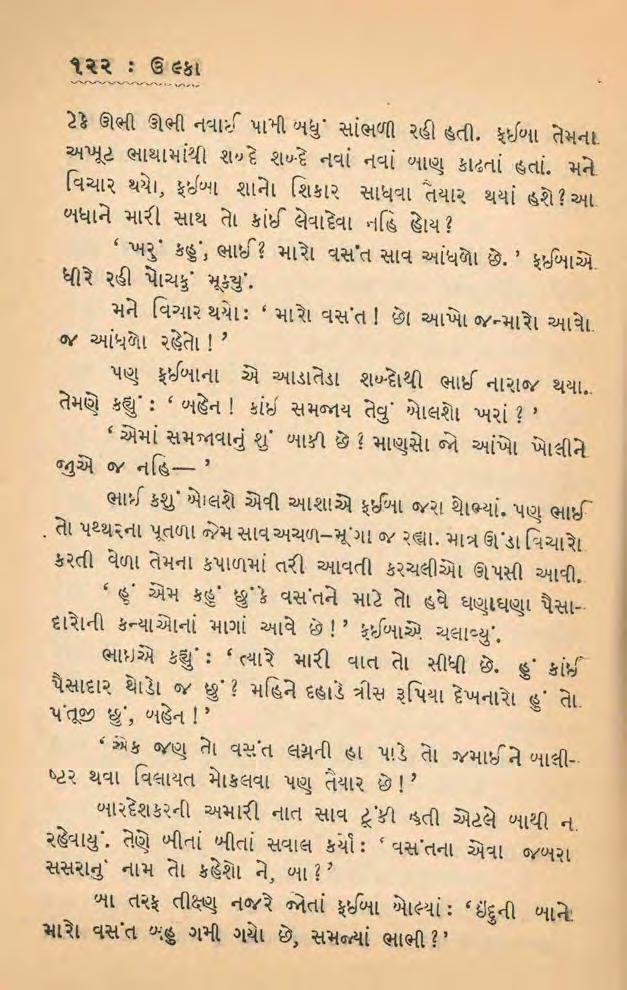 ૧૨૨ : ઉલ્કા
ટેકે ઊભી ઊભી નવાઈ પામી બધું સાંભળી રહી હતી. ફઈબા તેમના
અખૂટ ભાથામાંથી શબ્દે શબ્દે નવાં નવાં બાણ કાઢતાં હતાં. મને
વિચાર થયો, ફઈબા શાનો શિકાર સાધવા તૈયાર થયાં હશે? આ
બધાને મારી સાથ તો કાંઈ લેવાદેવા નહિ હોય?
‘ ખરું કહું, ભાઈ? મારો વસંત સાવ આંધળો છે. ’ ફઈબાએ
ધીરે રહી પોચકું મૂક્યું.
મને વિચાર થયો: ‘ મારો વસંત! છો આખો જન્મારો આવો
જ આંધળો રહેતો! ’
પણ ફઈબાના એ આડાતેડા શબ્દોથી ભાઈ નારાજ થયા.
તેમણે કહ્યું : ‘ બહેન! કાંઈ સમજાય તેવું બોલશો ખરાં? ’
‘ એમાં સમજાવાનું શું બાકી છે? માણસો જો આંખો ખોલીને
જુએ જ નહિ— ’
ભાઈ કશું બોલશે એવી આશાએ ફઈબા જરા થોભ્યાં. પણ ભાઈ
તો પથ્થરના પૂતળા જેમ સાવ અચળ–મૂંગા જ રહ્યા. માત્ર ઊંડા વિચારો
કરતી વેળા તેમના કપાળમાં તરી આવતી કરચલીઓ ઊપસી આવી.
‘ હું એમ કહું છું કે વસંતને માટે તો હવે ઘણાઘણા પૈસા-
દારોની કન્યાઓનાં માગાં આવે છે! ’ ફઈબાએ ચલાવ્યું.
ભાઇએ કહ્યું : ‘ ત્યારે મારી વાત તો સીધી છે. હું કાંઈ
પૈસાદાર થોડો જ છું? મહિને દહાડે ત્રીસ રૂપિયા દેખનારો હું તો
પંતૂજી છું, બહેન! ’
‘ એક જણ તો વસંત લગ્નની હા પાડે તો જમાઈને બાલી-
ષ્ટર થવા વિલાયત મોકલવા પણ તૈયાર છે! ’
બારદેશકરની અમારી નાત સાવ ટૂંકી હતી એટલે બાથી ન
રહેવાયું. તેણે બીતાં બીતાં સવાલ કર્યો : ‘ વસંતના એવા જબરા
સસરાનું નામ તો કહેશો ને, બા? ’
બા તરફ તીક્ષ્ણ નજરે જોતાં ફઈબા બોલ્યાં : ‘ ઇંદુની બાને
મારો વસંત બહુ ગમી ગયો છે, સમજ્યાં ભાભી? ’